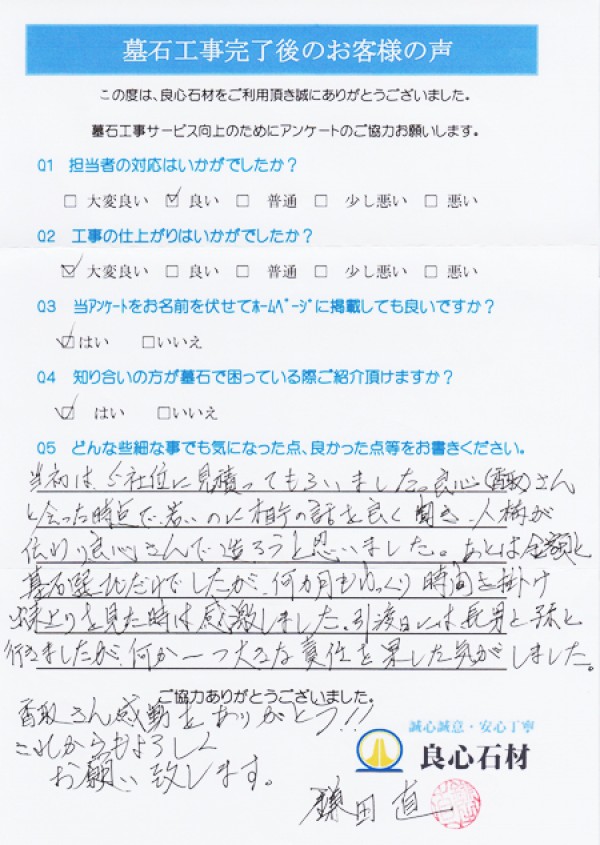 墓石工事完了後のお客様の声
この度は、良心石材をご利用頂き誠にありがとうございました。
墓石工事サービス向上のためにアンケートのご協力お願いします。
Q1 担当者の対応はいかがでしたか？
□ 大変良い ☑ 良い □ 普通 □ 少し悪い □ 悪い
Q2 工事の仕上がりはいかがでしたか？
☑ 大変良い □ 良い □ 普通 □ 少し悪い □ 悪い
Q3 当ｱﾝｹｰﾄをお名前を伏せてﾎｰﾑﾍﾟｰｼﾞに掲載しても良いですか？
☑はい □いいえ
Q4 知り合いの方が墓石で困っている際ご紹介頂けますか？
☑ はい □いいえ
Q5 どんな些細な事でも気になった点、良かった点等をお書きください。
当初は、5社位に見積ってもらいました。良心(香取)さん
と会った時点で、若いのに相手の話を良く聞き、人柄が
伝わり良心さんで造ろうと思いました。あとは金額と
墓石選びだけでしたが、何カ月もゆっくり時間を掛け
とりを見た時は感激しました。引渡日には長男と孫と
行きましたが、何か一つ大きな責任を果した気がしました。
ご協力ありがとうございました。
香取さん感動をありがとう!!
これからもよろしく
お願い致します。
誠心誠意・安心丁寧
良心石材
鎌田直